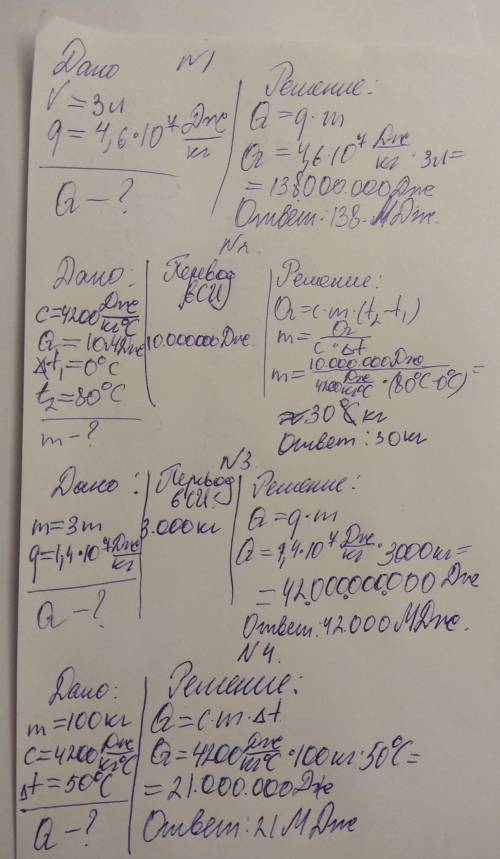 №1
Дано
V = 3л
q = 4,6·10⁷ Дж/кг
Q - ?
Решение:
Q = q·m
Q = 4,6·10⁷ Дж/кг · 3л =
= 138000.000Дж
Ответ: 138 МДж.
№2.
Дано:
c=4200 Дж/кг°C
Q = 10МДж
Δt₁ = 0°C
t₂ = 80°C
m - ?
Перевод
в СИ
10.000000Дж.
Решение:
Q = c·m·(t₂-t₁)
m = Q/c·Δt
m = 10.000.000Дж/4200 Дж/кг°C ·(80°C-0°C) =
≈30 кг
Ответ: 30кг
№3
Дано:
m = 3т
q=1,4·10⁷ Дж/кг
Q - ?
Перевод
в СИ:
3.000кг
Решение:
Q = q·m
Q=1,4·10⁷ Дж/кг · 3000кг=
= 42.000.000.000 Дж
Ответ: 42.000 МДж.
№4.
Дано:
m = 100кг
c=4200 Дж/кг°C
Δt = 50°C
Q - ?
Решение:
Q = c·m·Δt
Q=4200 Дж/кг°C ·100кг·50°C=
= 21.000.000Дж
Ответ: 21 МДж